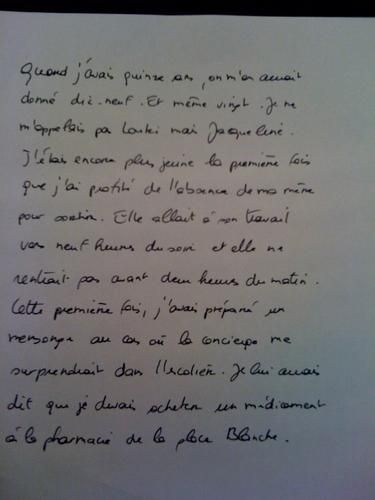 Quand j'avais quinze ans, on m'en aurait
donné dix-neuf. Et même vingt. Je ne
m'appelais pas Louki mais Jacqueline.
J'étais encore plus jeune la première fois
que j'ai profité de l'absence de ma mère
pour sortir. Elle allait à son travail
vers neuf heures du soir et elle ne
rentrait pas avant deux heures du matin.
Cette première fois, j'avais préparé un
mensonge au cas où la concierge me
surprendrait dans l'escalier. Je lui aurais
dit que je devais acheter un médicament
à la pharmacie de la place Blanche.